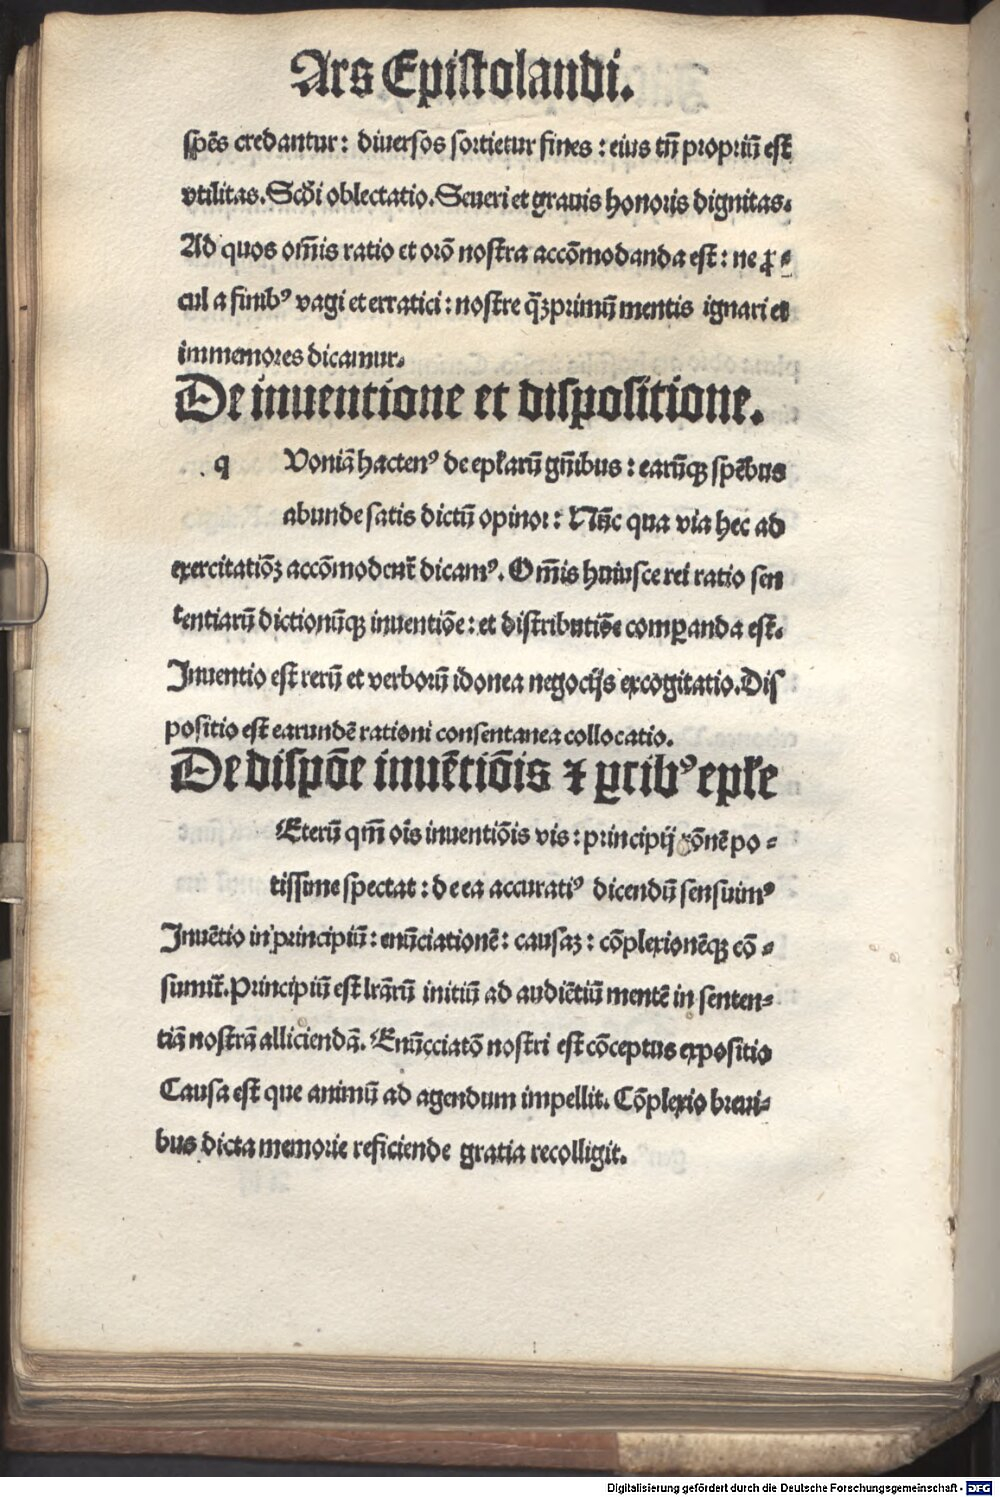 Ars Epistolandi.
spēs credantur: diuersos sortietur fines: eius tn̄ propriū est
vtilitas. Scd̄i oblectatio. Seueri et grauis honoris dignitas.
Ad quos om̄is ratio et orō nostra accōmodanda est: ne ꝓ⸗
cul a finibꝰ vagi et erratici: nostre q̄ꝫprimū mentis ignari et
immemores dicamur.
De inuentione et dispositione.
q Voniā hactenꝰ de epl̄arū gn̄ibus: earūqꝫ spēbus
abunde satis dictū opinor: Nūc qua via hec ad
exercitatiōꝫ accōmodent᷑ dicamꝰ. Om̄is huiusce rei ratio sen
tentiarū dictionūqꝫ inuentiōe: et distributiōe comꝑanda est.
Inuentio est rerū et verborū idonea negocijs excogitatio. Dis
positio est earundē rationi consentanea collocatio.
De dispōe inuētiōis ⁊ ꝑtibꝰ epl̄e
Eterū qm̄ oīs inuentiōis vis: principij rōnē po⸗
tissime spectat: de ea accuratiꝰ dicendū sensuimꝰ
Inuētio in principiū: enūciationē: causaꝫ: cōplexionēqꝫ cō⸗
sumit᷑. Principiū est lr̄arū initiū ad audiētiū mentē in senten⸗
tiā nostrā alliciendā. Enūcciatō nostri est cōceptus expositio
Causa est que animū ad agendum impellit. Cōplexio breui⸗
bus dicta memorie reficiende gratia recolligit.
Digitalisierung gefördert durch die Deutsche Forschungsgemeinschaft - DFG